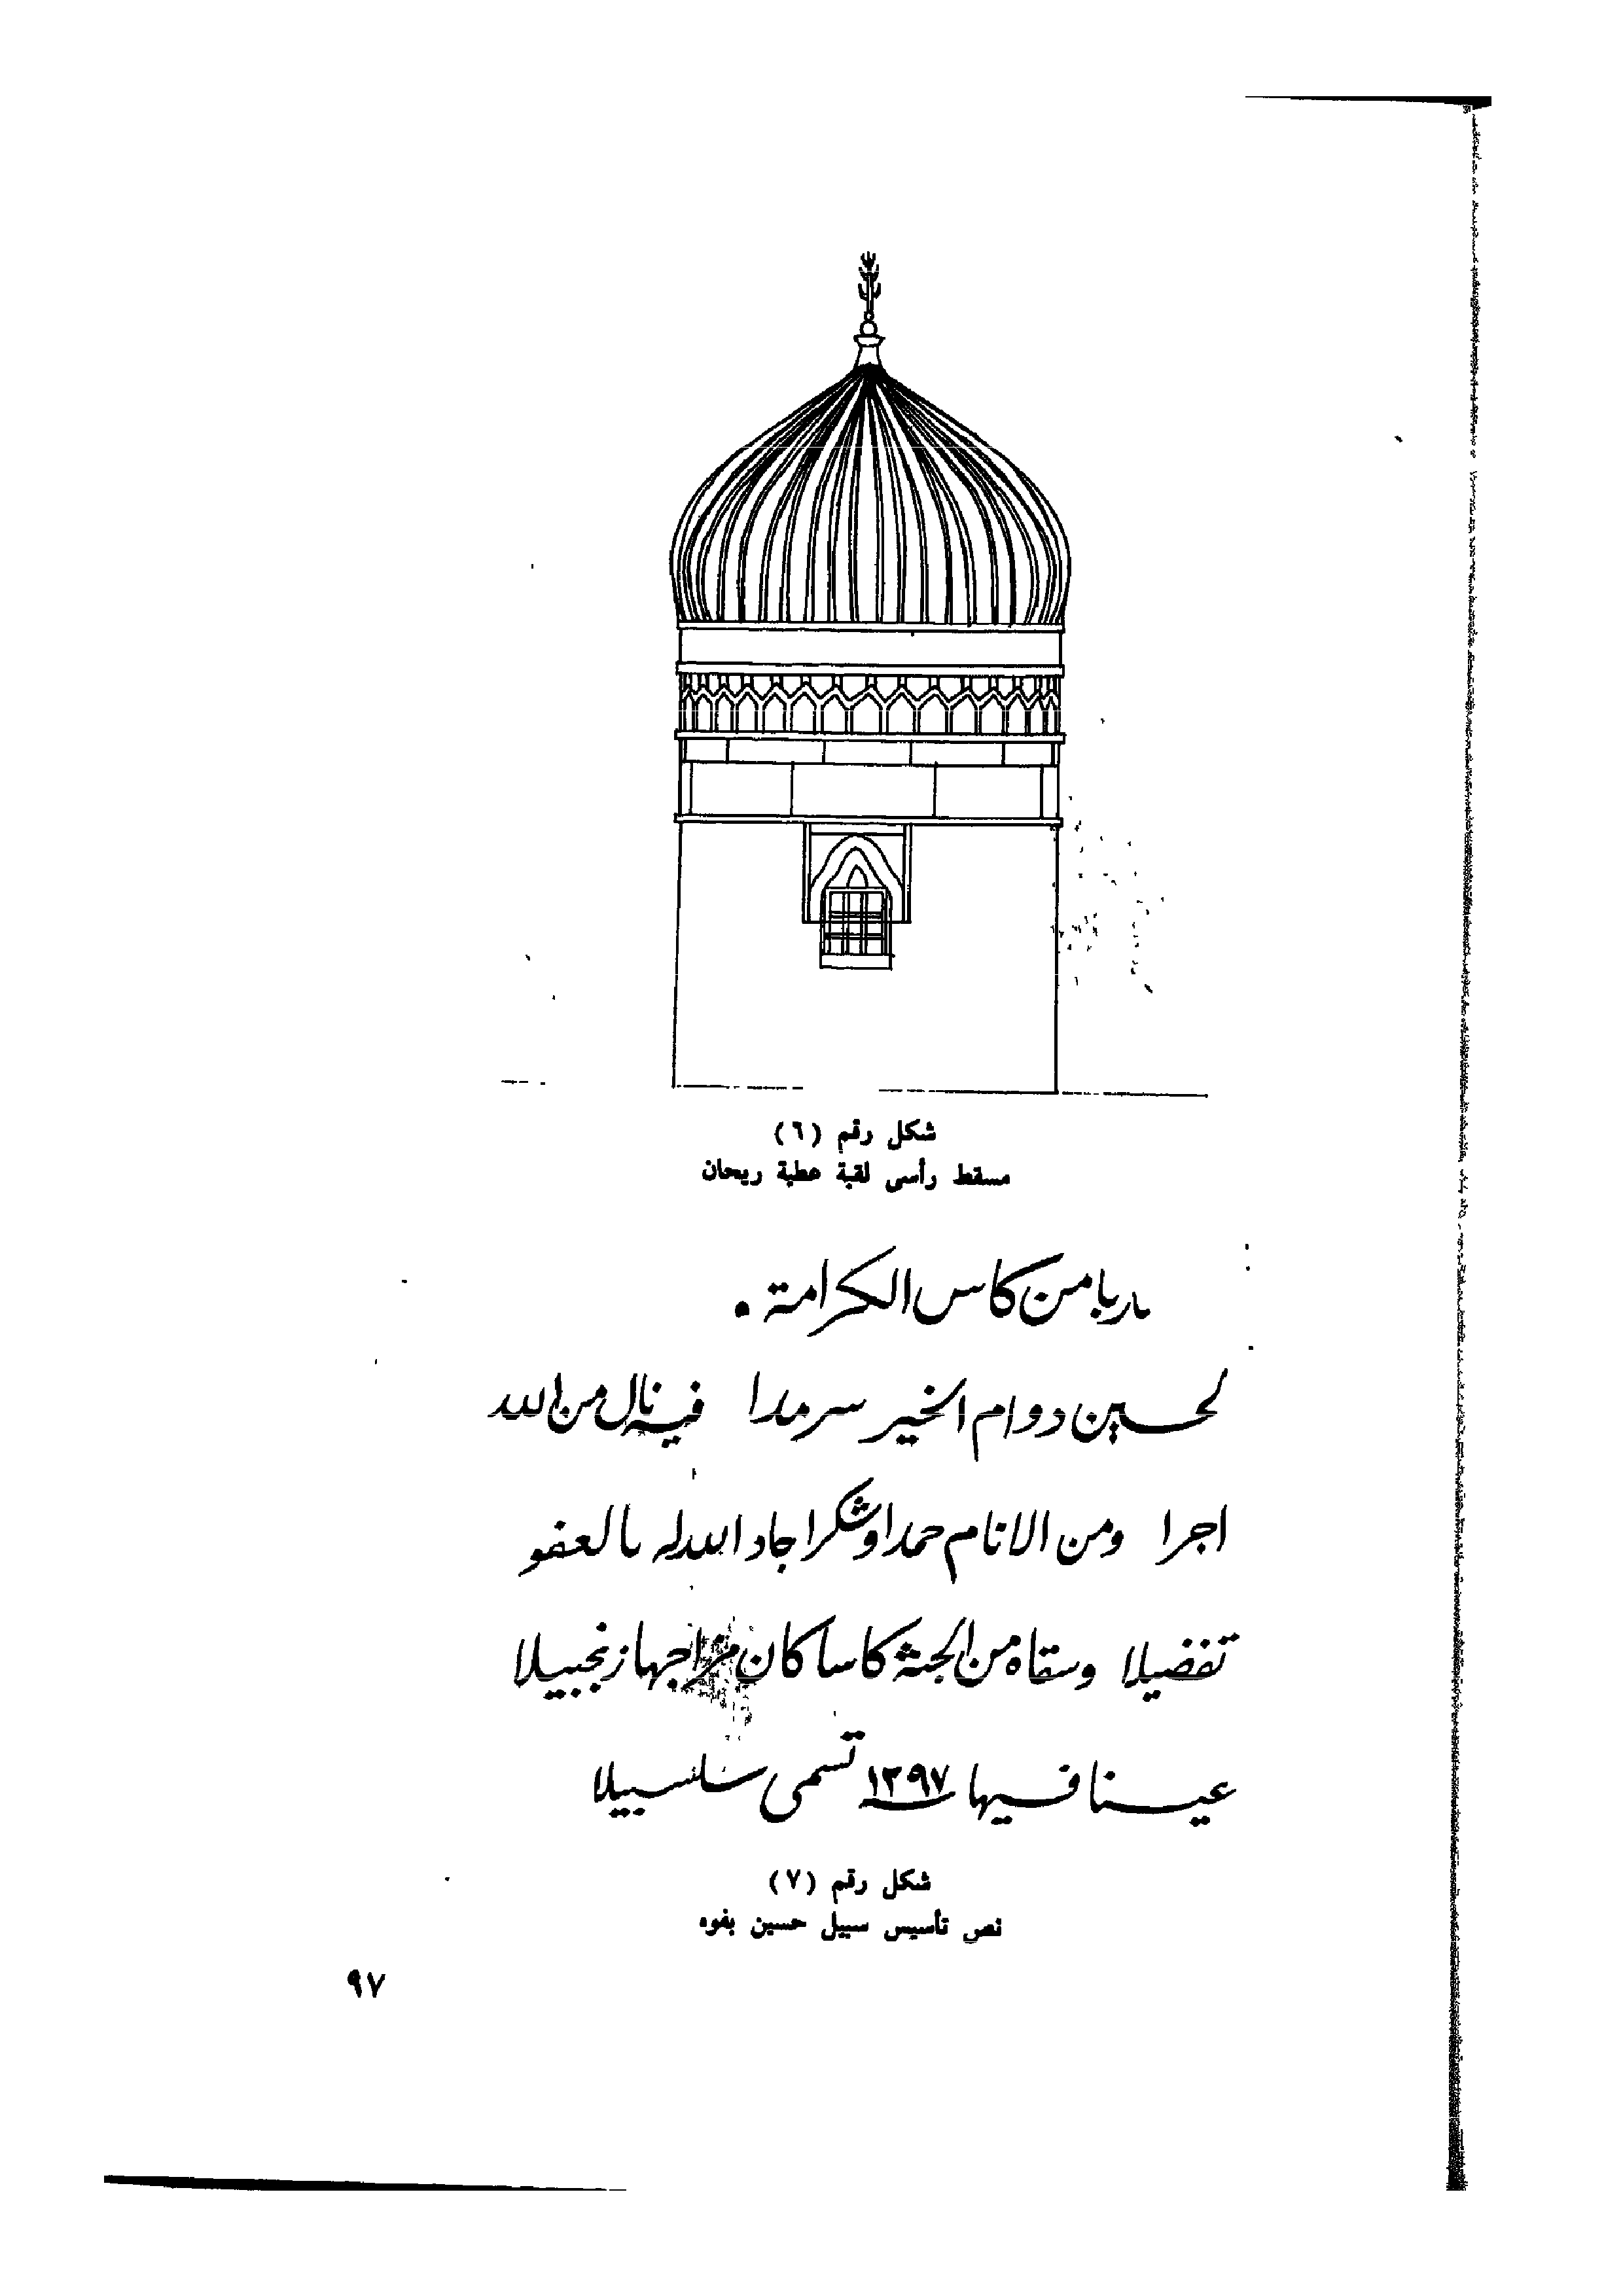 شكل رقم (٦)
مسقط رأسى لقبة عطية ريحان
من كاس الكرامة .
لحسين دوام الخير سرمدا فيه نال من الله
اجرا ومن الانام حمدا وشكرا جاد الله له بالعفو
تفضيلا وسقاه من الجنة كاسا كان مزاجها زنجبيلا
عينا فيها ١٢٩٧ تسمى سلسبيلا
شكل رقم (٧)
نص تأسيس سبيل حسين بفوه
٩٧